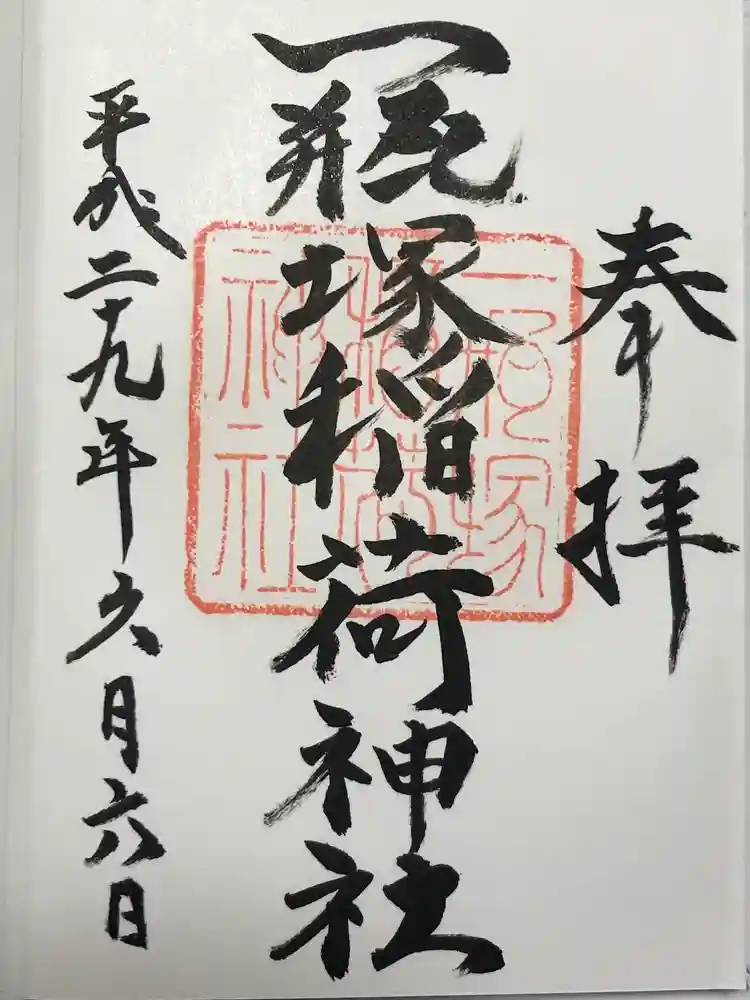 奉拝
一瓶塚稲荷神社
一瓶塚
稲荷
神社
平成二十九年久月六日